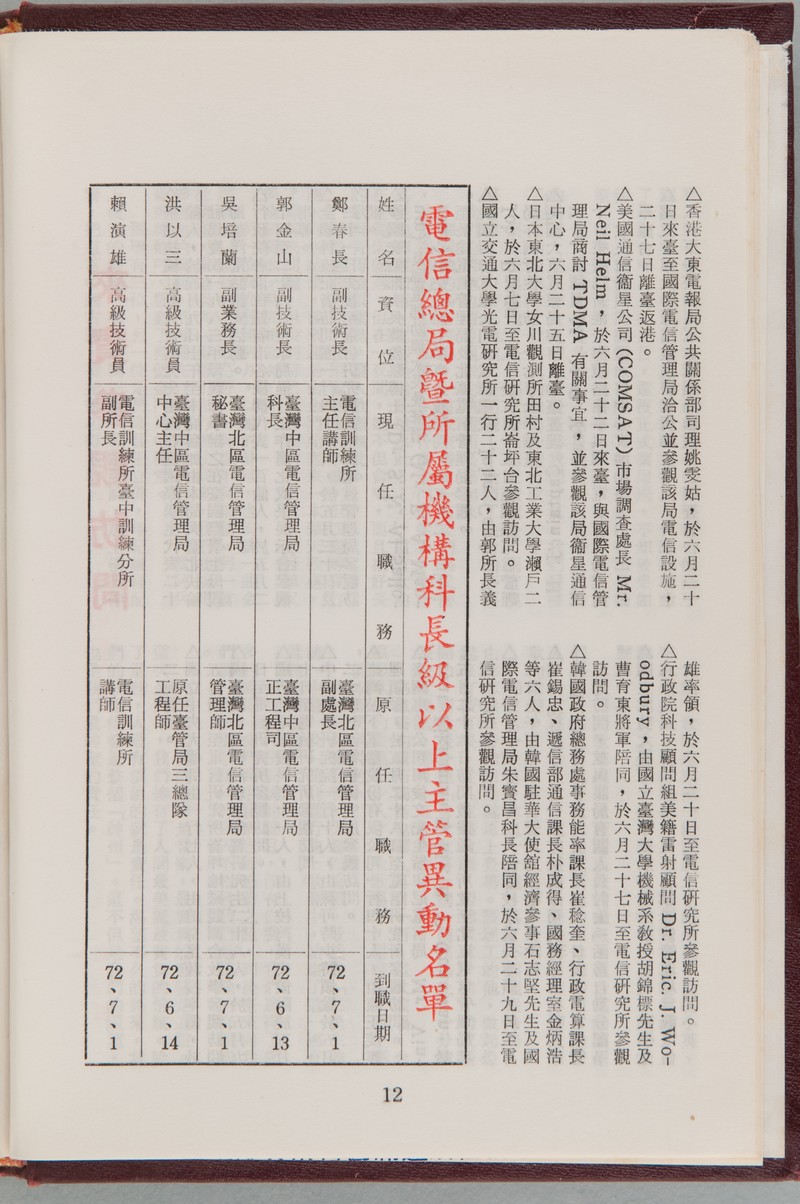 △香港大東電報局公共關係部司理姚雯姑，於六月二十
日來臺至國際電信管理局洽公並參觀該局電信設施，
二十七日離臺返港。
△美國通信衞星公司(COMSAT)市場調查處長 Mr.
Neil Helm，於六月二十二日來臺，與國際電信管
理局商討 TDMA 有關事宜，並參觀該局衞星通信
中心，六月二十五日離臺。
△日本東北大學女川觀測所田村及東北工業大學瀨戶二
人，於六月七日至電信研究所崙坪台參觀訪問。
△國立交通大學光電研究所一行二十二人，由郭所長義
雄率領，於六月二十日至電信研究所參觀訪問。
△行政院科技顧問組美籍雷射顧問 Dr. Eric. J. Wo-
odbury，由國立臺灣大學機械系教授胡錦標先生及
曹育東將軍陪同，於六月二十七日至電信研究所參觀
訪問。
△韓國政府總務處事務能率課長崔稔奎、行政電算課長
崔錫忠、遞信部通信課長朴成得、國務經理室金炳浩
等六人，由韓國駐華大使舘經濟參事石志堅先生及國
際電信管理局朱賓昌科長陪同，於六月二十九日至電
信研究所參觀訪問。
電信總局暨所屬機構科長級以上主管異動名單
姓名 資位 現任職務 原任職務 到職日期
鄭春長 副技術長 電信訓練所 臺灣北區電信管理局 72、7、1
主任講師 副處長
郭金山 副技術長 臺灣中區電信管理局 臺灣中區電信管理局 72、6、13
科長 正工程司
吳培蘭 副業務長 臺灣北區電信管理局 臺灣北區電信管理局 72、7、1
秘書 管理師
洪以三 高級技術員 臺灣中區電信管理局 原任臺管局三總隊 72、6、14
中心主任 工程師
賴演雄 高級技術員 電信訓練所臺中訓練分所 電信訓練所 72、7、1
副所長 講師
12